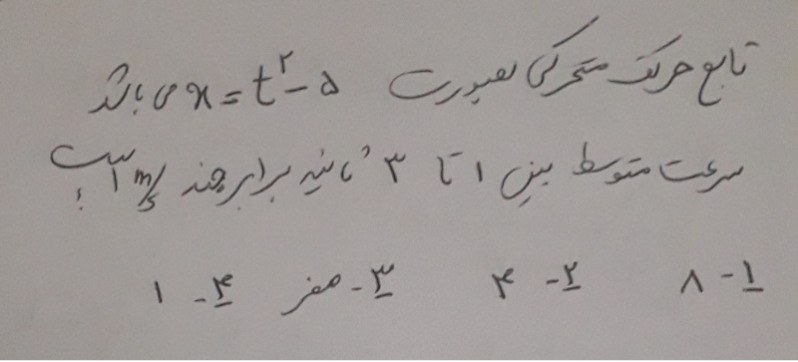 تابع حرکت متحرکی بصورت x = t² - ۵ می باشد
سرعت متوسط بین ۱ تا ۳ ثانیه برابر چند m/s است؟
۱- ۸ ۲- ۴ ۳- صفر ۴- ۱